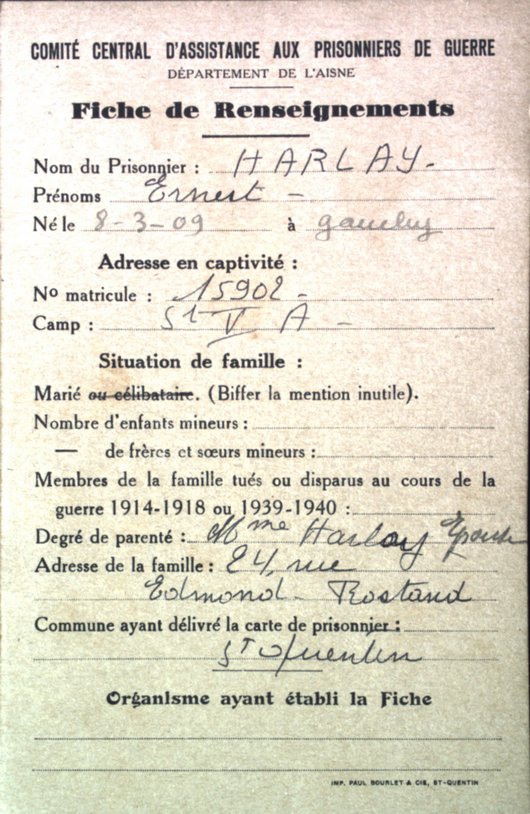 COMITÉ CENTRAL D'ASSISTANCE AUX PRISONNIERS DE GUERRE
DÉPARTEMENT DE L'AISNE
Fiche de Renseignements
Nom du Prisonnier : HARLAY-
Prénoms Ernest -
Né le 8-3-09 à
Adresse en captivité :
No matricule : 15902 -
Camp : St V A -
Situation de famille :
Marié ou célibataire. (Biffer la mention inutile).
Nombre d'enfants mineurs :
— de frères et sœurs mineurs :
Membres de la famille tués ou disparus au cours de la
guerre 1914-1918 ou 1939-1940 :
Degré de parenté : Mme Harlay Epouse
Adresse de la famille : 24, rue
Edmond - Rostand
Commune ayant délivré la carte de prisonnier :
St Quentin
Organisme ayant établi la Fiche
IMP. PAUL BOURLET & CIE, ST-QUENTIN